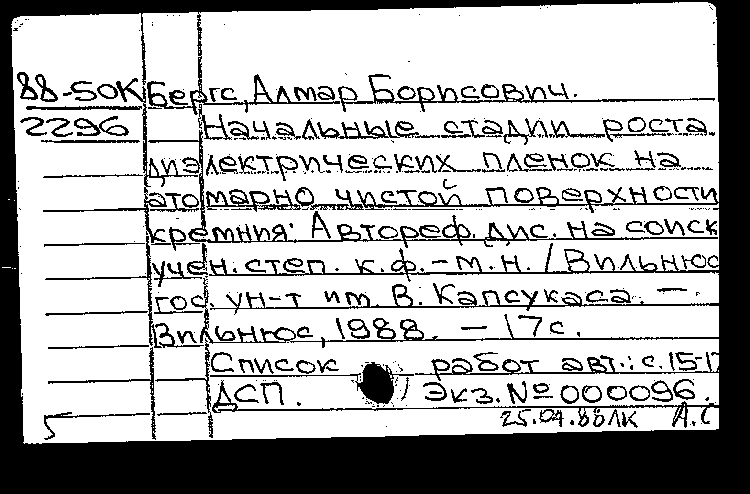 88-50К Бергс, Алмар Борисович.
2296 Начальные стадии роста
диэлектрических пленок на
атомарно чистой поверхности
кремния: Автореф. дис. на соиск
учен. степ. к.ф.-м.н. / Вильнюс
гос. ун-т им. В. Капсукаса. —.
Вильнюс, 1988. — 17 с.
Список работ авт.: с. 15-17
ДСП. Экз. № 000096.
25.04.88 ЛК А.С
5